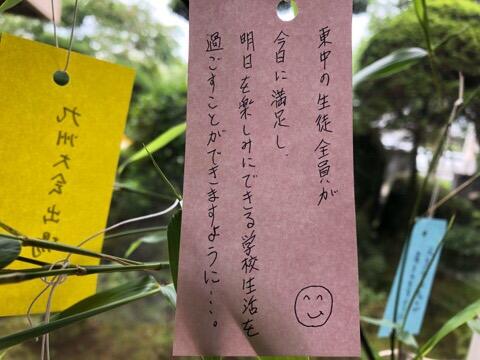 東中の生徒全員が
今日に満足し、
明日を楽しみにできる学校生活を
過ごすことができますように…。
九州大会出場